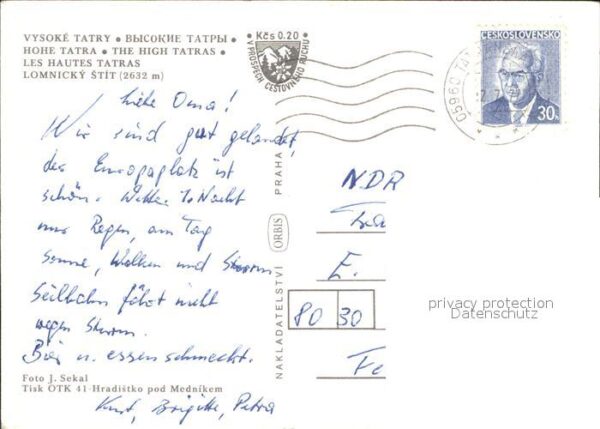 VYSOKÉ TATRY • ВЫСОКИЕ ТАТРЫ •
HOHE TATRA • THE HIGH TATRAS •
LES HAUTES TATRAS
LOMNICKÝ ŠTÍT (2632 m)
Kčs 0.20
V PROSPĚCH CESTOVNÉHO RUCHU
ČESKOSLOVENSKO
30
05960
Liebe Oma!
Wir sind gut gelandet,
der Europaplatz ist
schön. Wetter 1. Nacht
nur Regen, am Tag
Sonne, Wolken und Sturm
Seilbahn fährt nicht
wegen Sturm.
Bier u. essen schmeckt.
Kurt, Brigitte, Petra
Foto J. Sekal
Tisk OTK 41 Hradištko pod Medníkem
NAKLADATELSTVÍ ORBIS PRAHA
NDR
E.
80 30
privacy protection
Datenschutz